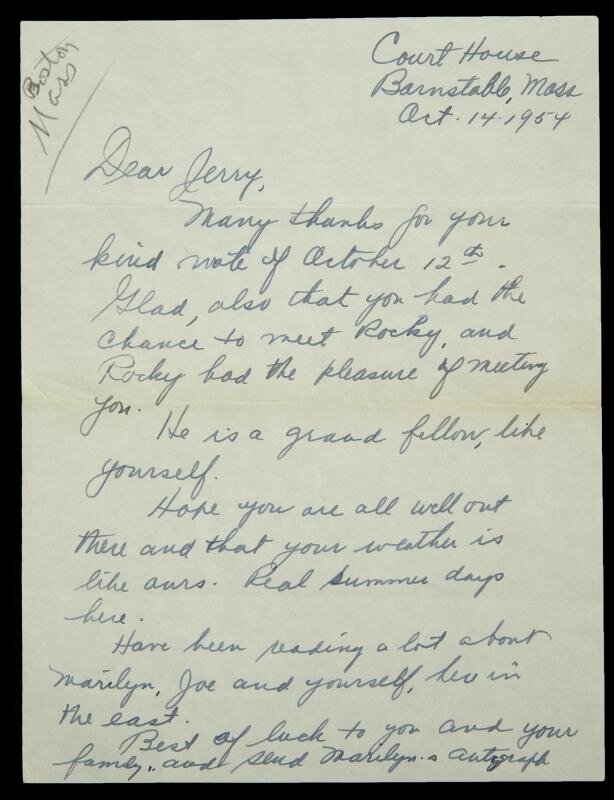 Boston
Mass
Court House
Barnstable, Mass
Oct. 14. 1954
Dear Jerry,
Many thanks for your
kind note of October 12th.
Glad, also that you had the
chance to meet Rocky, and
Rocky had the pleasure of meeting
you.
He is a grand fellow, like
yourself.
Hope you are all well out
there and that your weather is
like ours. Real summer days
here.
Have been reading a lot about
Marilyn, Joe and yourself, here in
the east.
Best of luck to you and your
family, and send Marilyn's autograph